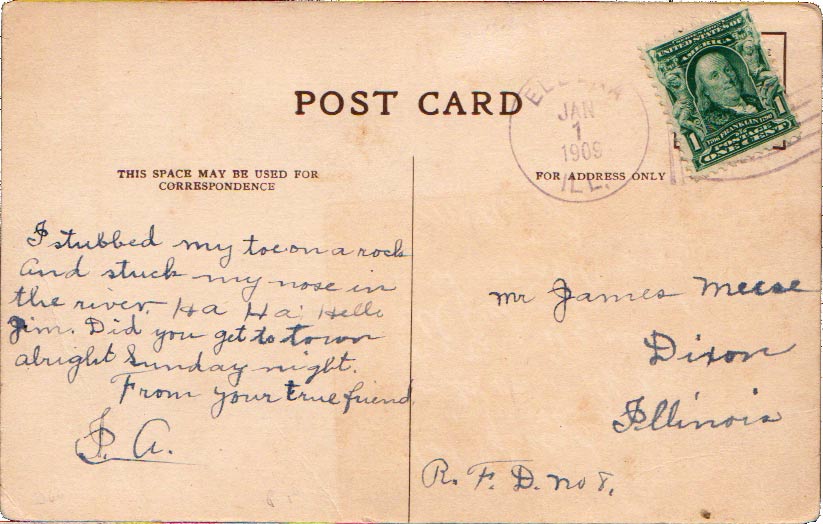 POST CARD
THIS SPACE MAY BE USED FOR
CORRESPONDENCE
FOR ADDRESS ONLY
JAN
1
1909
ILL.
UNITED STATES OF
AMERICA
1 1
1706 FRANKLIN 1790
POSTAGE
ONE CENT
I stubbed my toe on a rock
and stuck my nose in
the river. Ha Ha; Hello
Jim. Did you get to town
alright Sunday night.
From your true friend
A.
Mr James Meese
Dixon
Illinois
R. F. D. no 8.